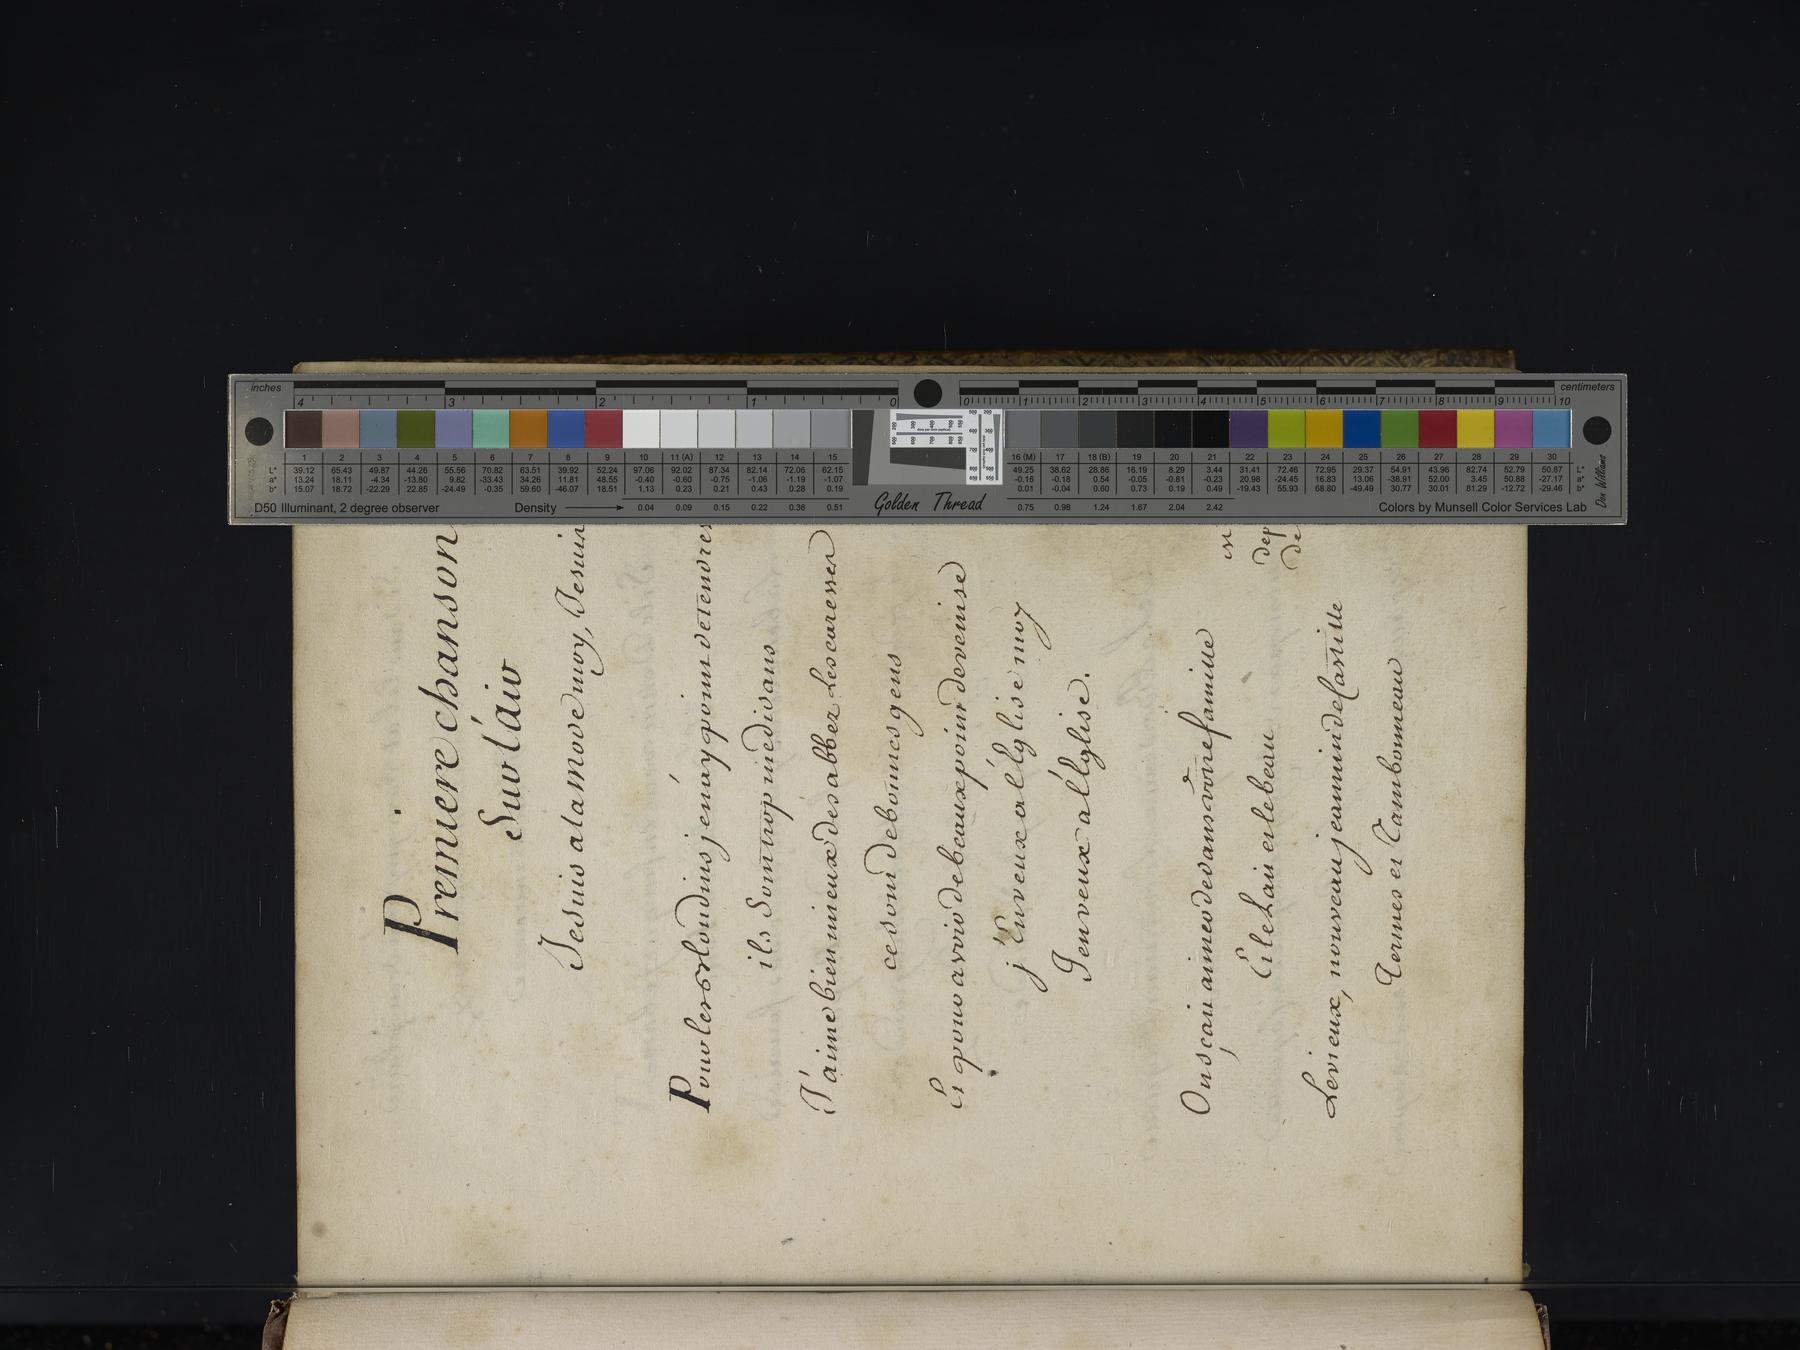 Premiere chanson
Sur l'air
Je suis a la mode moy, Je suis
Pour les blondins je n'ay point de tendres
ils Sont trop medisans
J'aime bien mieux des abbez Les caresses
ce sont de bonnes gens
Et pour avoir de beaux point de venise
j'En veux a l'Eglise moy
J'en veux a l'Eglise.
On sçait aimer dans votre famille
Et le Lait et le beau
Le vieux, nouveau jeannin de Castille
Termes et Tambonneau
en
dep
de
inches
centimeters
4 3 2 1 0
0 1 2 3 4 5 6 7 8 9 10
1 2 3 4 5 6 7 8 9 10 11 (A) 12 13 14 15
L* 39.12 65.43 49.87 44.26 55.56 70.82 63.51 39.92 52.24 97.06 92.02 87.34 82.14 72.06 62.15
a* 13.24 18.11 -4.34 -13.80 9.82 -33.43 34.26 11.81 48.55 -0.40 -0.60 -0.75 -1.06 -1.19 -1.07
b* 15.07 18.72 -22.29 22.85 -24.49 -0.35 59.60 -46.07 18.51 1.13 0.23 0.21 0.43 0.28 0.19
16 (M) 17 18 (B) 19 20 21 22 23 24 25 26 27 28 29 30
49.25 38.62 28.86 16.19 8.29 3.44 31.41 72.46 72.95 29.37 54.91 43.96 82.74 52.79 50.87 L*
-0.16 -0.18 0.54 -0.05 -0.81 -0.23 20.98 -24.45 16.83 13.06 -38.91 52.00 3.45 50.88 -27.17 a*
0.01 -0.04 0.60 0.73 0.19 0.49 -19.43 55.93 68.80 -49.49 30.77 30.01 81.29 -12.72 -29.46 b*
D50 Illuminant, 2 degree observer
Density 0.04 0.09 0.15 0.22 0.36 0.51
Golden Thread
0.75 0.98 1.24 1.67 2.04 2.42
Colors by Munsell Color Services Lab
Don Williams